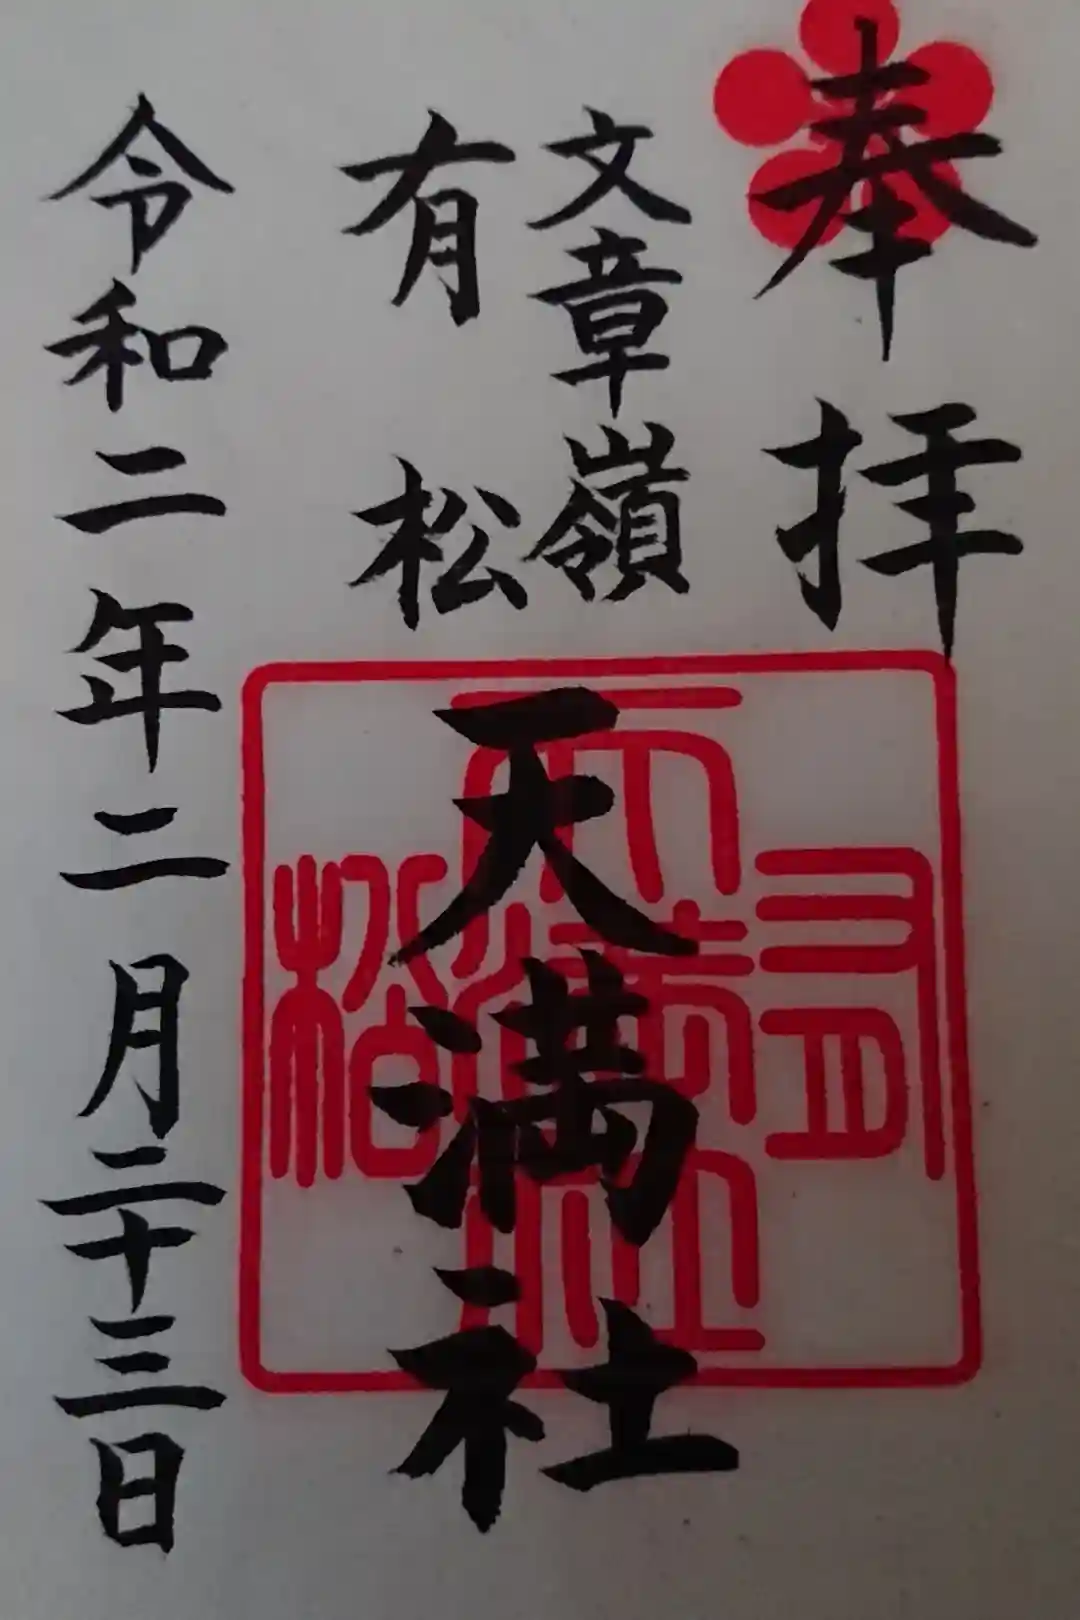 奉拝
文章嶺
有松
天満社
令和二年二月二十三日
有松天満社